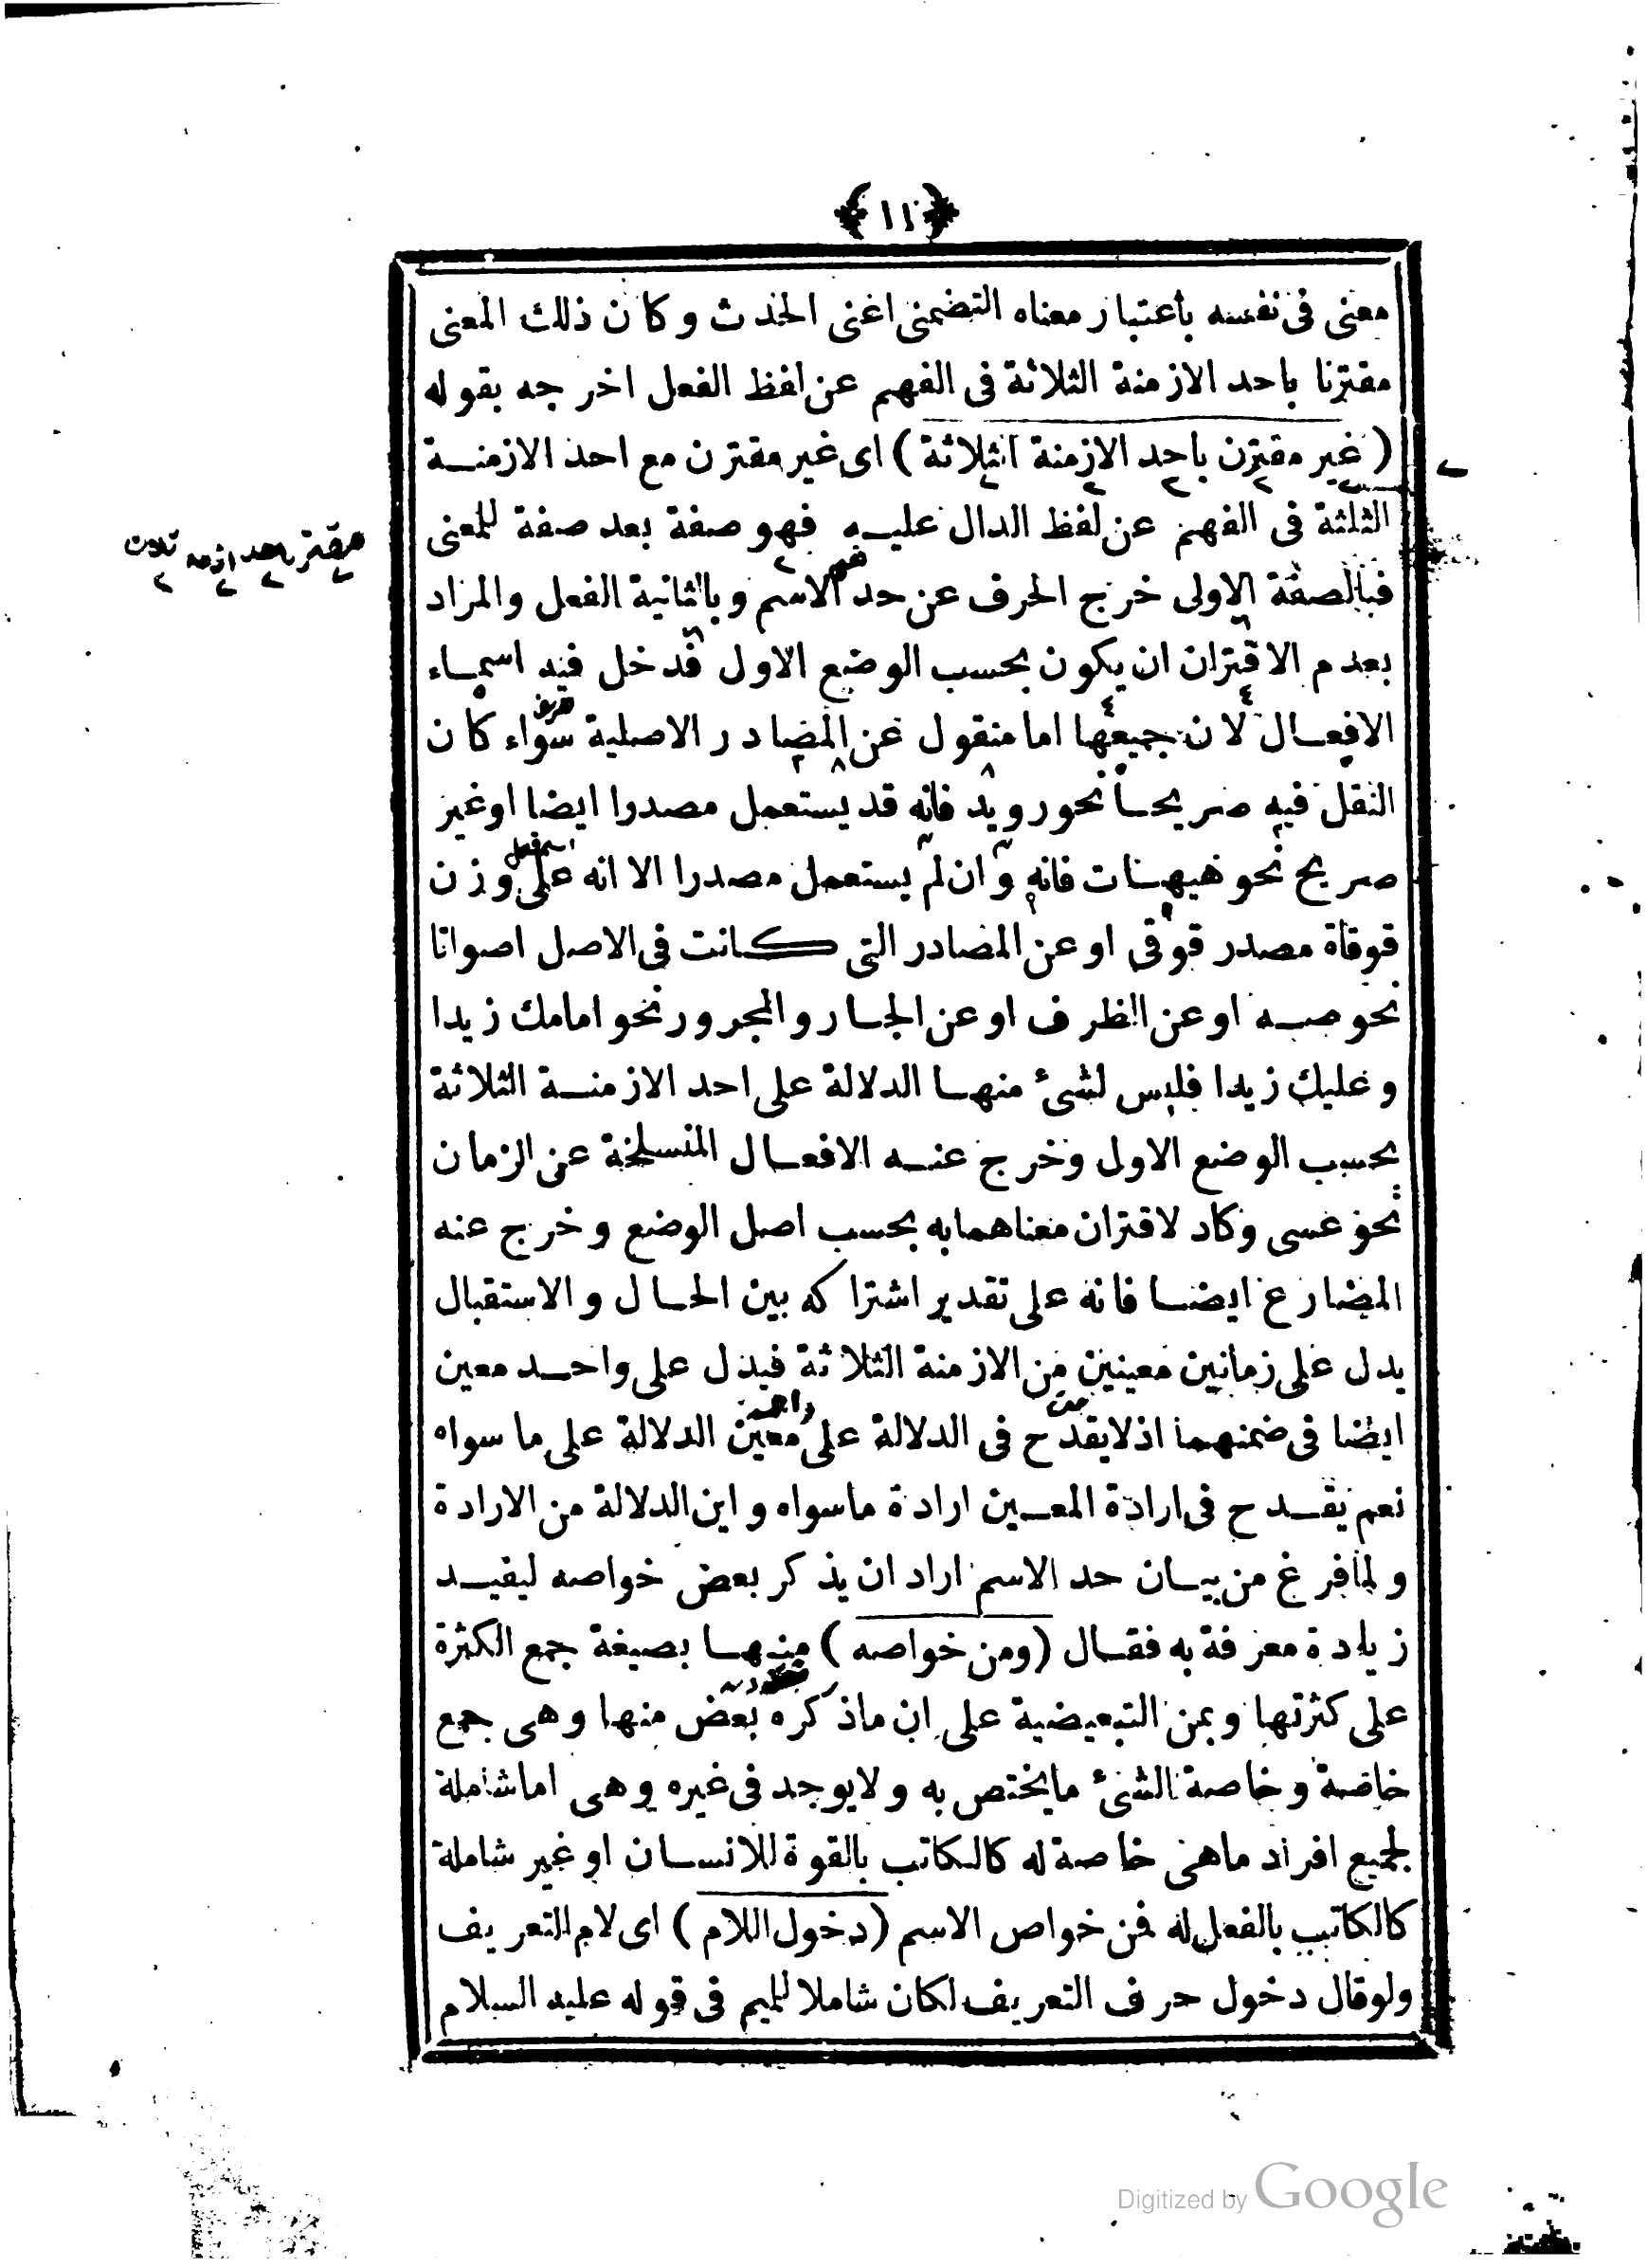 ﴿ ١١ ﴾
معنى فى نفسه بأعتبار معناه التضمنى اعنى الحدث وكان ذلك المعنى
مقترنا باحد الازمنة الثلاثة فى الفهم عن لفظ الفعل اخرجه بقوله
( غير مقترن باحد الازمنة الثلاثة ) اى غير مقترن مع احد الازمنة
الثلثة فى الفهم عن لفظ الدال عليه فهو صفة بعد صفة للمعنى
فبالصفة الاولى خرج الحرف عن حد الاسم وبالثانية الفعل والمراد
بعدم الاقتران ان يكون بحسب الوضع الاول فدخل فيه اسماء
الافعال لان جميعها اما منقول عن المصادر الاصلية سواء كان
النقل فيه صريحا نحو رويد فانه قد يستعمل مصدرا ايضا اوغير
صريح نحو هيهات فانه وان لم يستعمل مصدرا الا انه على وزن
قوقاة مصدر قوقى او عن المصادر التى كانت فى الاصل اصواتا
نحو صه او عن الظرف او عن الجار والمجرور نحو امامك زيدا
وعليك زيدا فليس لشئ منها الدلالة على احد الازمنة الثلاثة
بحسب الوضع الاول وخرج عنه الافعال المنسلخة عن الزمان
نحو عسى وكاد لاقتران معناهما به بحسب اصل الوضع وخرج عنه
المضارع ايضا فانه على تقدير اشتراكه بين الحال والاستقبال
يدل على زمانين معينين من الازمنة الثلاثة فيدل على واحد معين
ايضا فى ضمنهما اذلا يقدح فى الدلالة على معين الدلالة على ما سواه
نعم يقدح فى ارادة المعين ارادة ماسواه واين الدلالة من الارادة
ولما فرغ من بيان حد الاسم اراد ان يذكر بعض خواصه ليفيد
زيادة معرفة به فقال (ومن خواصه ) منبها بصيغة جمع الكثرة
على كثرتها وبمن التبعيضية على ان ماذكره بعض منها وهى جمع
خاصة وخاصة الشئ مايختص به ولايوجد فى غيره وهى اما شاملة
لجميع افراد ماهى خاصة له كالكاتب بالقوة للانسان او غير شاملة
كالكاتب بالفعل له فمن خواص الاسم (دخول اللام ) اى لام التعريف
ولو قال دخول حرف التعريف لكان شاملا للميم فى قوله عليه السلام
Digitized by Google